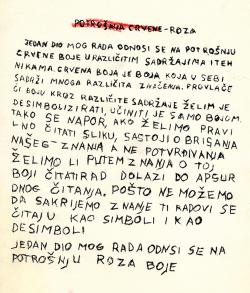 POTROŠNJA CRVENE - ROZA
JEDAN DIO MOG RADA ODNOSI SE NA POTROŠNJU
CRVENE BOJE U RAZLIČITIM SADRŽAJIMA I TEH
NIKAMA. CRVENA BOJA JE BOJA KOJA U SEBI
SADRŽI MNOGA RAZLIČITA ZNAČENJA. PROVLAČE
ĆI BOJU KROZ RAZLIČITE SADRŽAJE ŽELIM JE
DESIMBOLIZIRATI, UČINITI JE SAMO BOJOM.
TAKO SE NAPOR, AKO ŽELIMO PRAVI
LNO ČITATI SLIKU, SASTOJI O BRISANJA
NAŠEG ZNANJA A NE POTVRĐIVANJA
ŽELIMO LI PUTEM ZNANJA O TOJ
BOJI ČITATI RAD DOLAZI DO APSUR
DNOG ČITANJA. POŠTO NE MOŽEMO
DA SAKRIJEMO ZNANJE TI RADOVI SE
ČITAJU KAO SIMBOLI I KAO
DESIMBOLI
JEDAN DIO MOG RADA ODNSI SE NA
POTROŠNJU ROZA BOJE